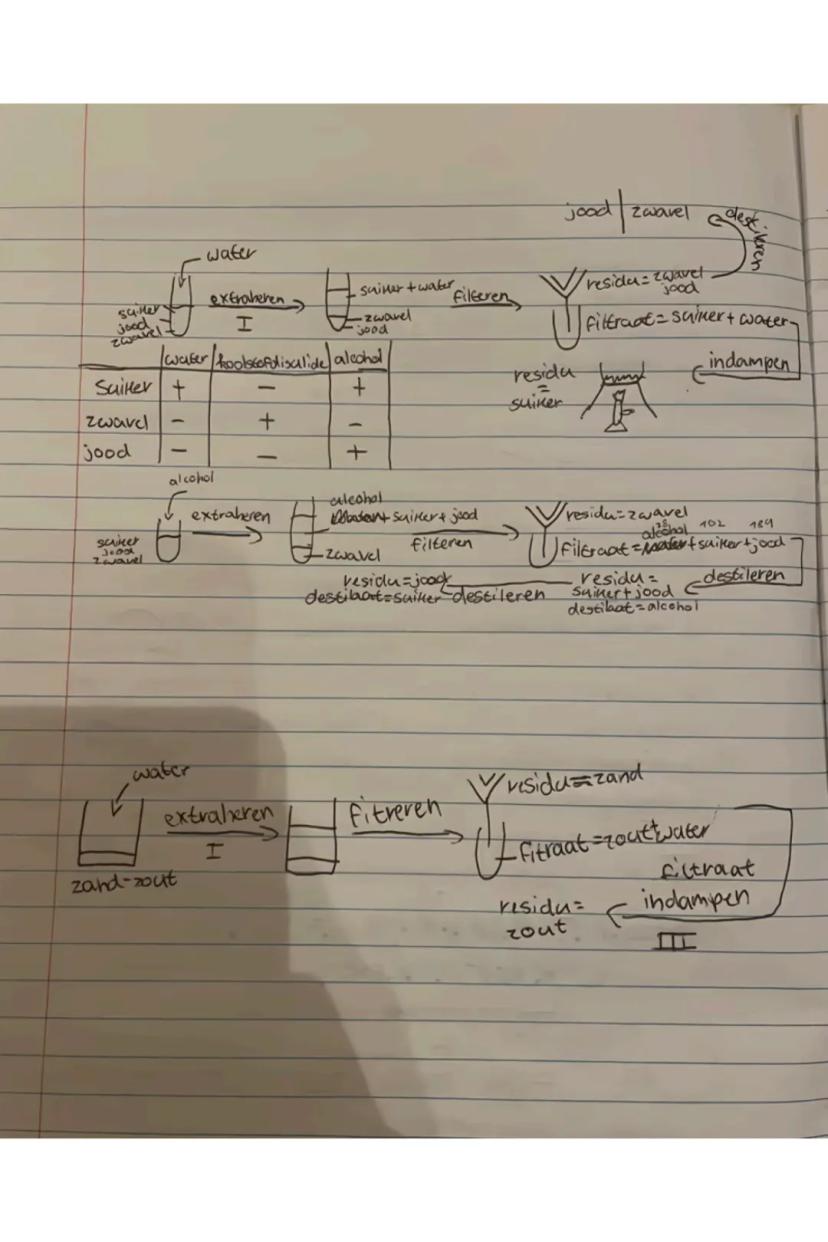 jood | zwavel destileren
water
suiker
jood
zwavel
extraheren
I
suiker + water
zwavel
jood
filteren
residu = zwavel
jood
filtraat = suiker + water
indampen
residu
=
suiker
water koolstofdisulide alcohol
suiker + - +
zwavel - + -
jood - - +
alcohol
suiker
jood
zwavel
extraheren
alcohol
+ suiker + jood
zwavel
filteren
residu = zwavel
78 102 184
alcohol
filtraat = water + suiker + jood
destileren
residu =
suiker + jood
destilaat = alcohol
destileren
residu = jood
destilaat = suiker
water
zand-zout
extraheren
I
fitreren
residu = zand
fitraat = zout + water
filtraat
indampen
III
residu =
zout